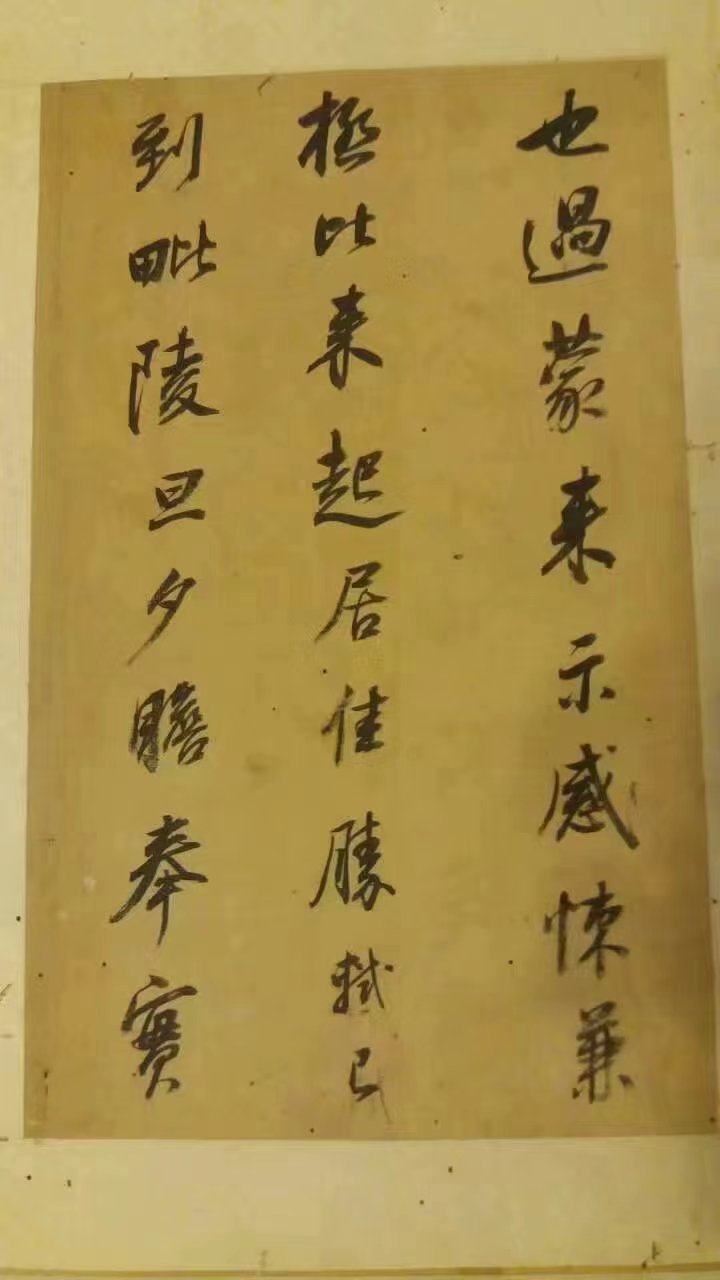 也過蒙来示感悚兼
極比来起居佳勝軾已
到毗陵旦夕瞻奉實